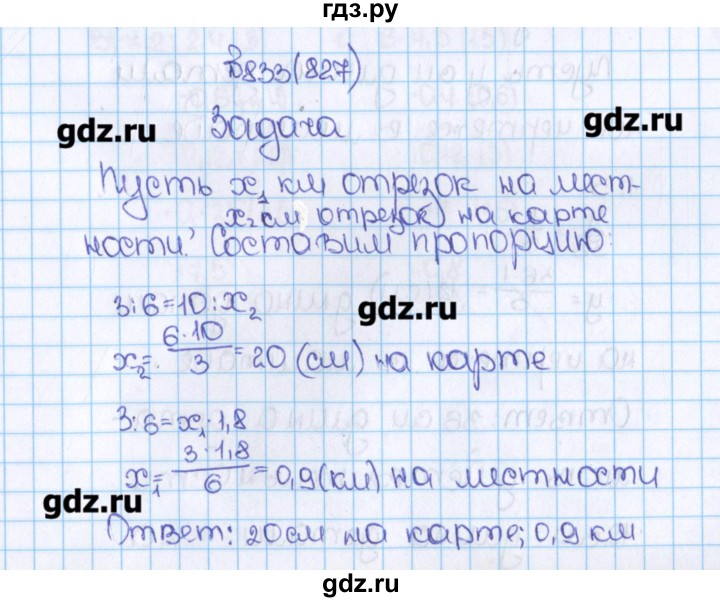 гдз.ру
В833(827)
gdz.ru
gdz.ru
Задача
Пусть x₁ км отрезок на мест-
x₂ см отрезок на карте
ности. Составим пропорцию:
3:6=10:x₂
gdz.ru
x₂= 6·10/3 =20 (см) на карте
3:6=x₁·1,8
x₁= 3·1,8/6 =0,9(км) на местности
gdz.ru
Ответ: 20см на карте; 0,9 км
gdz.ru